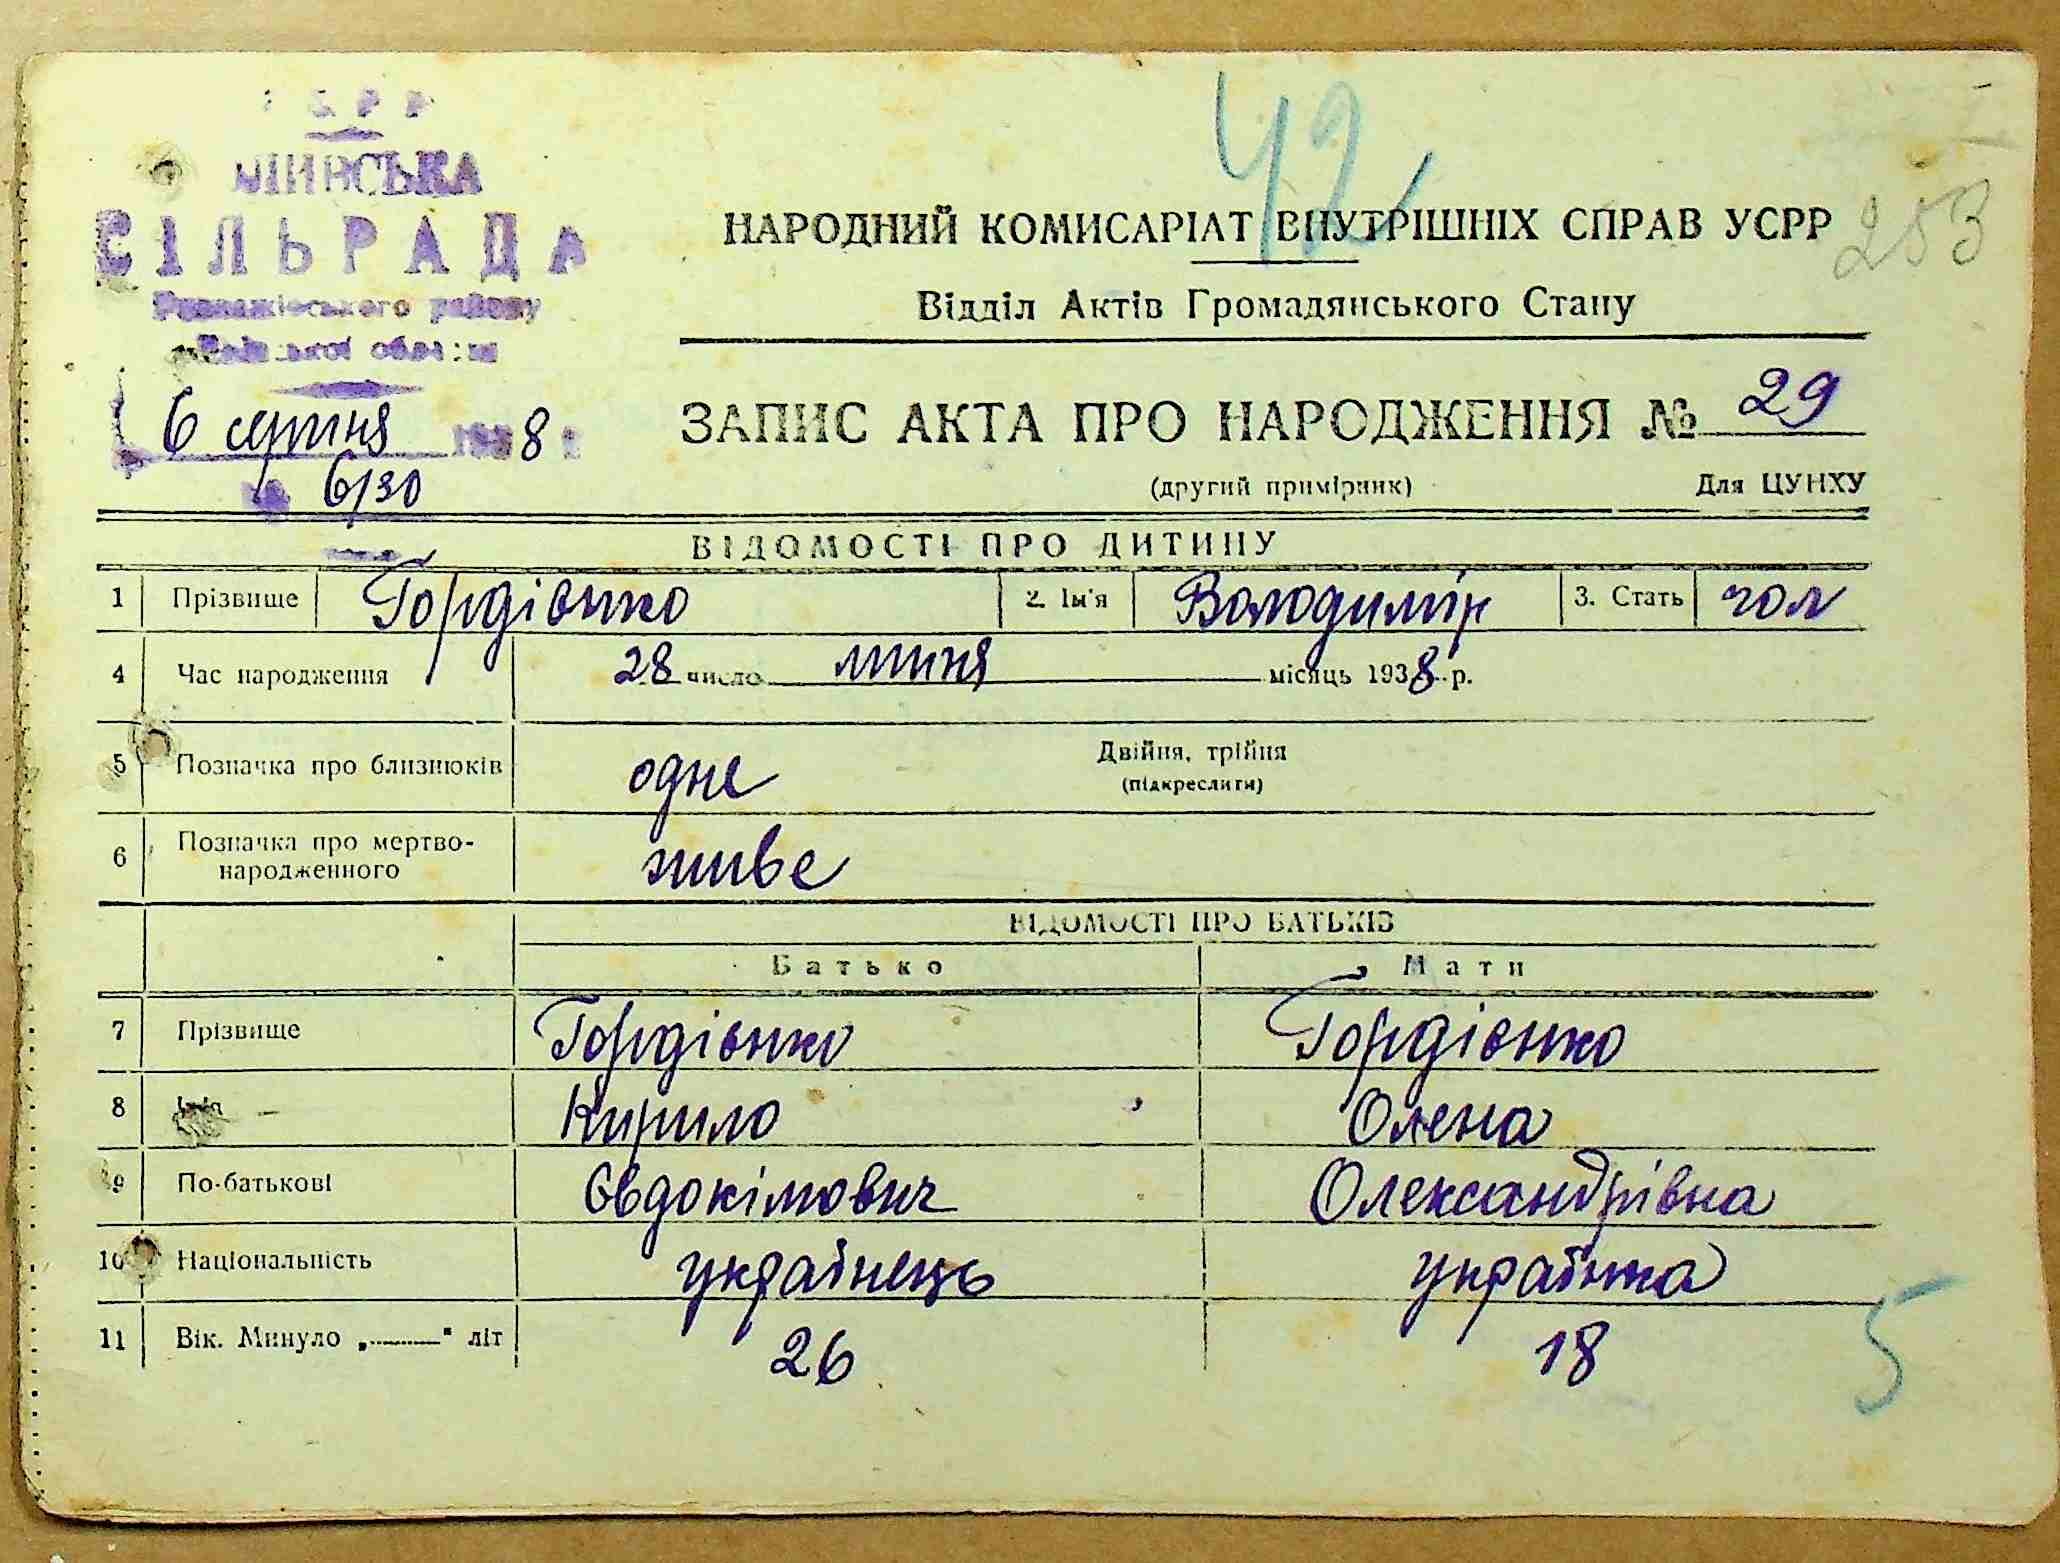 УСРР
СІЛЬРАДА
Розважівського району
Київської області
6 серпня 1938 р
6/30
42
253
НАРОДНИЙ КОМИСАРІАТ ВНУТРІШНІХ СПРАВ УСРР
Відділ Актів Громадянського Стану
ЗАПИС АКТА ПРО НАРОДЖЕННЯ № 29
(другий примірник) Для ЦУНХУ
ВІДОМОСТІ ПРО ДИТИНУ
1 Прізвище Гордієнко 2. Ім'я Володимір 3. Стать чол
4 Час народження 28 число липня місяць 1938 р.
5 Позначка про близнюків одне Двійня, трійня
(підкреслити)
6 Позначка про мертво-
народженного живе
ВІДОМОСТІ ПРО БАТЬКІВ
Батько Мати
7 Прізвище Гордієнко Гордієнко
8 Ім'я Кирило Олена
9 По-батькові Євдокімович Олександрівна
10 Національність українець українка
11 Вік. Минуло „ " літ 26 18
5